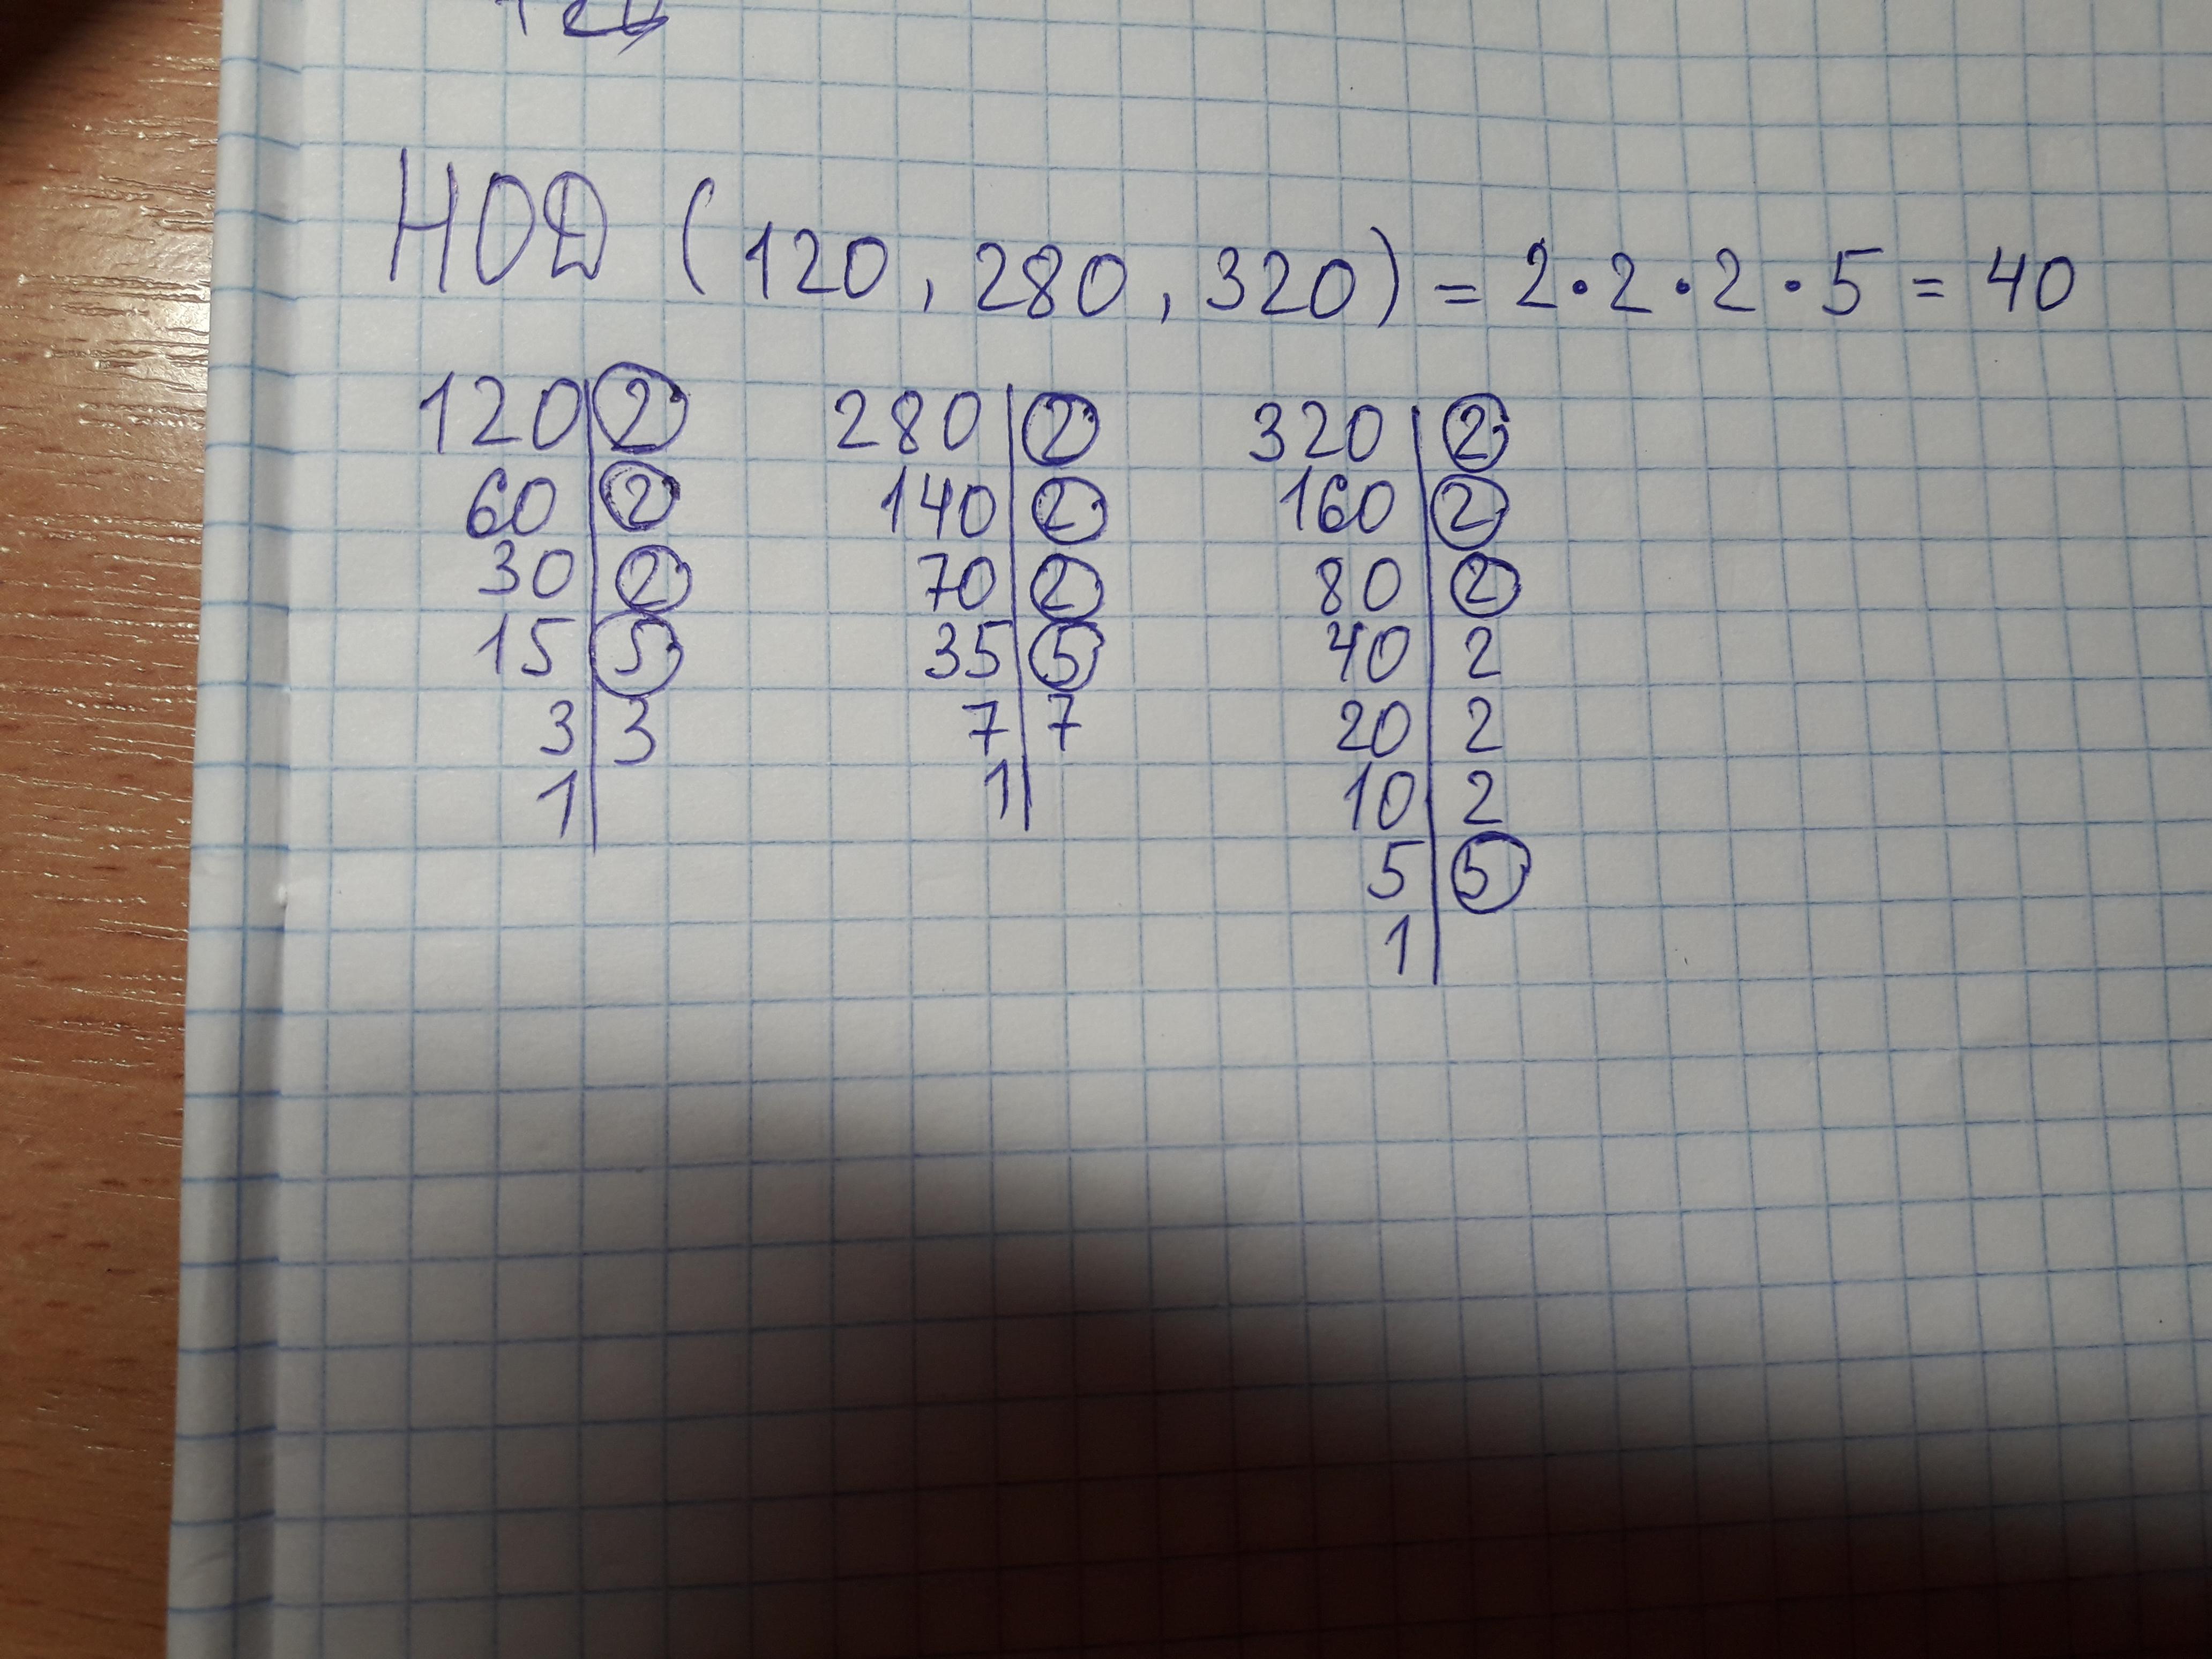 НОД (120, 280, 320) = 2·2·2·5 = 40
120 2 280 2 320 2
60 2 140 2 160 2
30 2 70 2 80 2
15 5 35 5 40 2
3 3 7 7 20 2
1 1 10 2
5 5
1